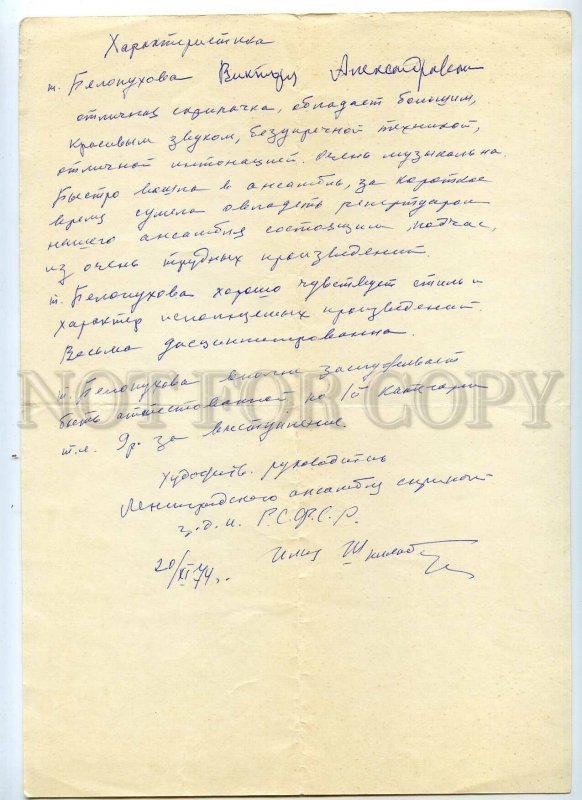 Характеристика
т. Белопухова Виктория Александровна
отличная скрипачка, обладает большим,
красивым звуком, безупречной техникой,
отличной интонацией. Очень музыкальна.
Быстро вошла в ансамбль, за короткое
время сумела овладеть репертуаром
нашего ансамбля состоящим, подчас,
из очень трудных произведений.
т. Белопухова хорошо чувствует стиль и
характер исполняемых произведений.
Весьма дисциплинированна.
т. Белопухова вполне заслуживает
быть аттестованной по 1й категории
т.е. 9р. за выступление.
NOT FOR COPY
Художеств. руководитель
Ленинградского ансамбля скрипачей
з.д.и. Р.С.Ф.С.Р.
20/XI 74 г.
Илья